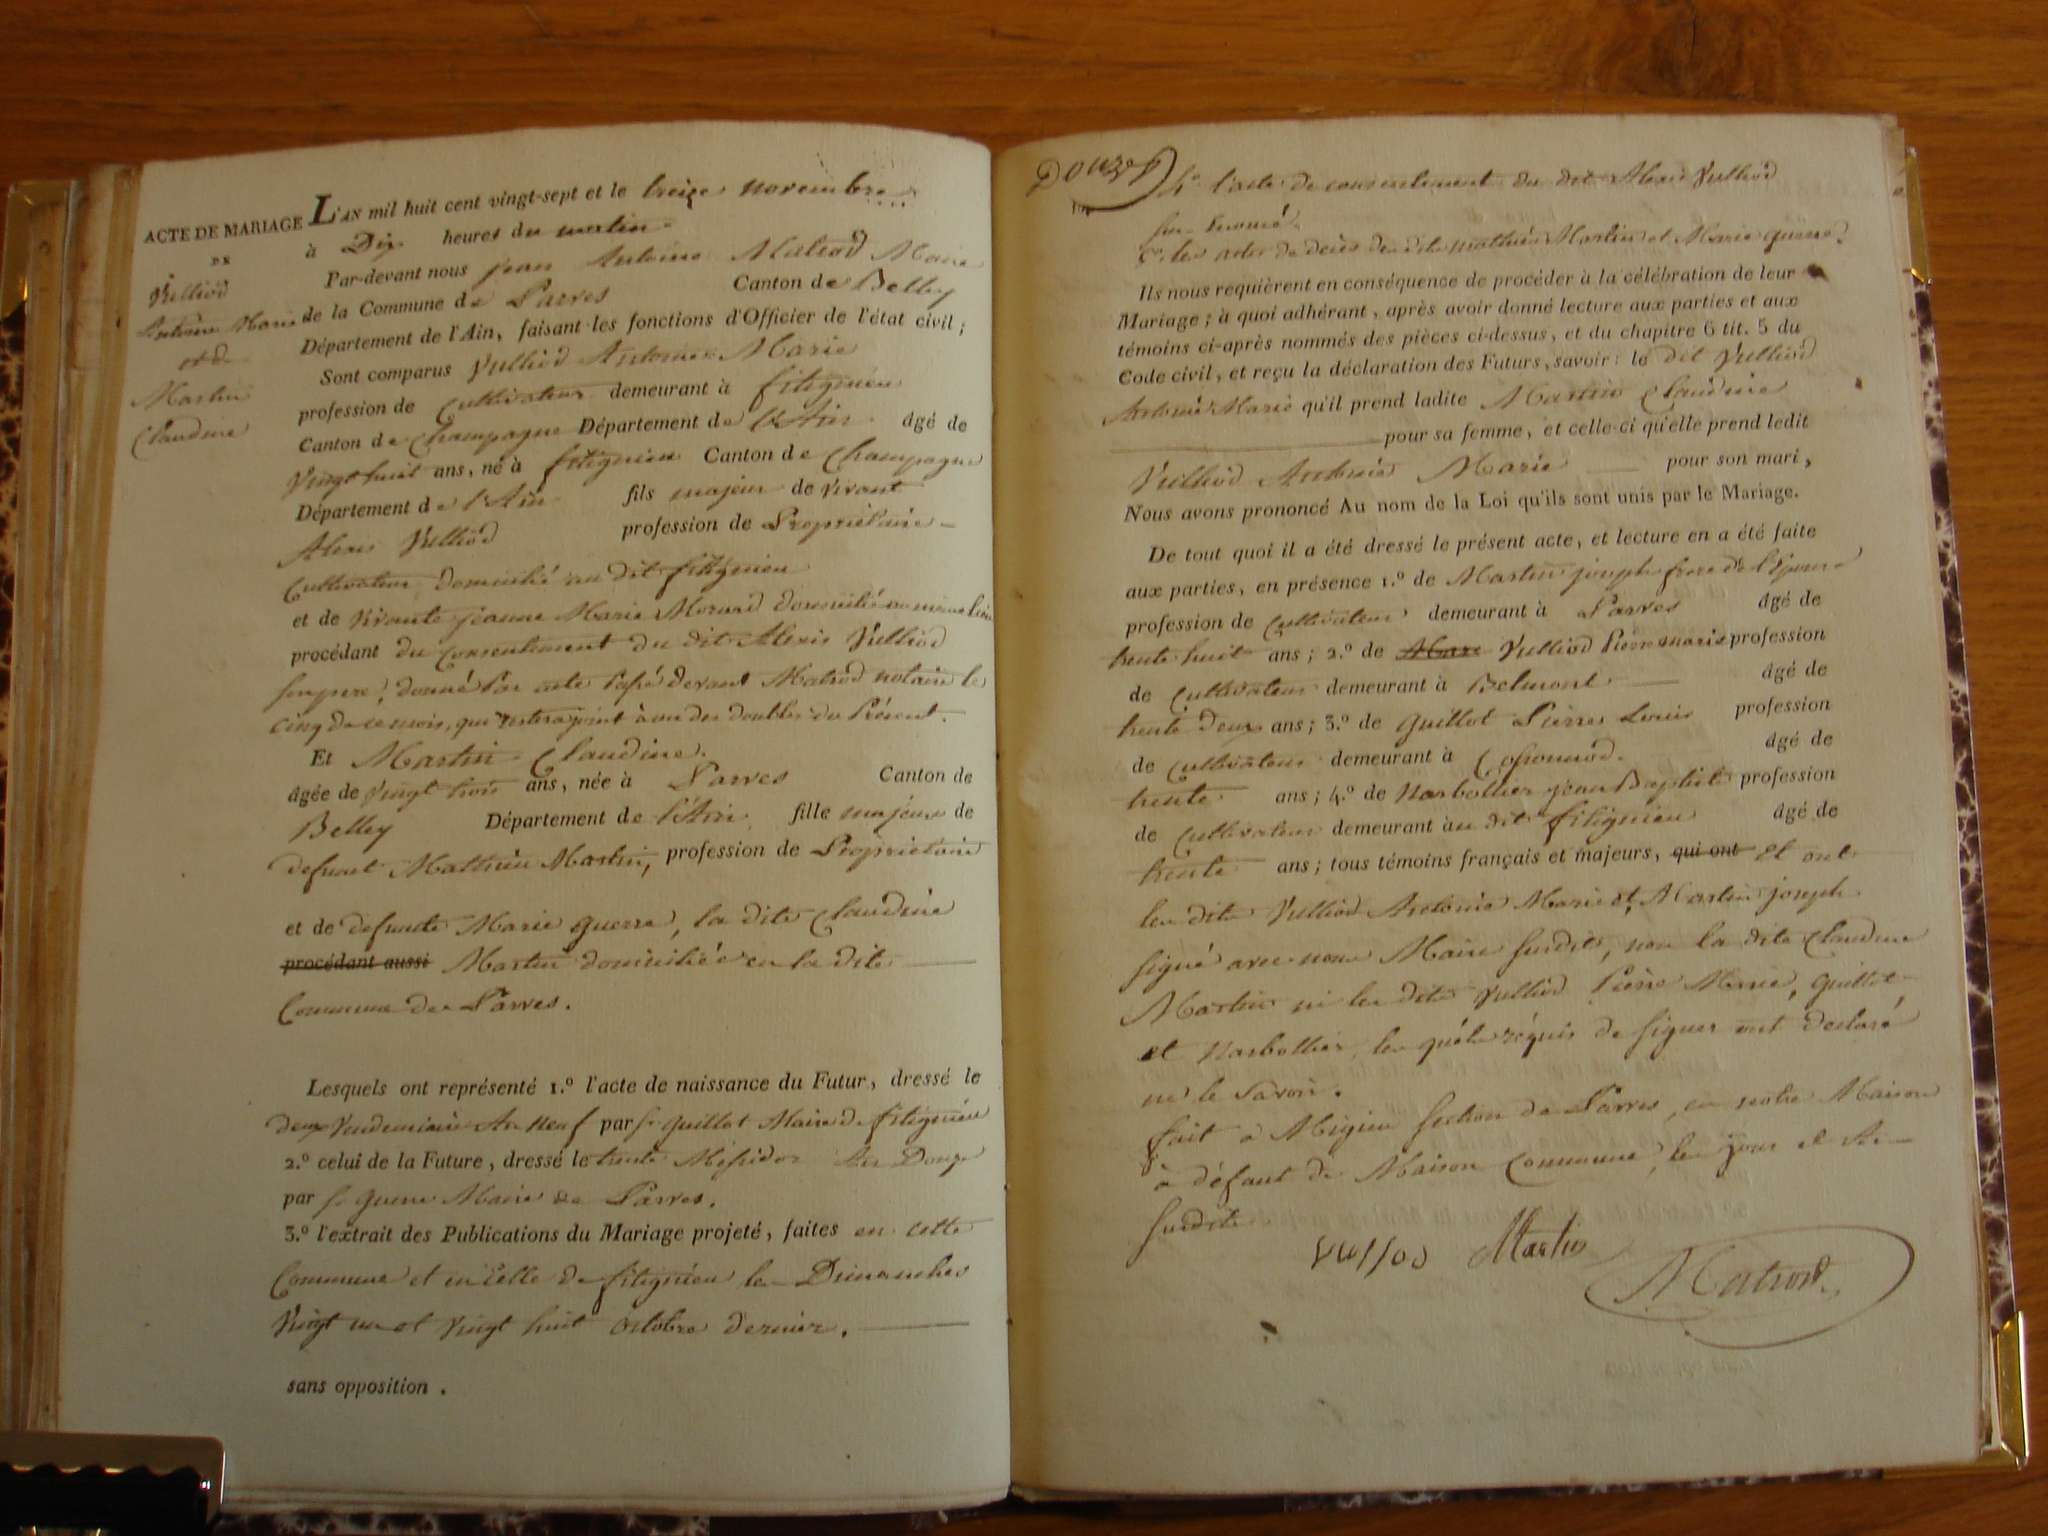 ACTE DE MARIAGE
DE
Vulliod
Antoine Marie
et de
Martin
Claudine
L'AN mil huit cent vingt-sept et le treize novembre
à Dix heures du matin
Par-devant nous jean Antoine Matrod Maire
de la Commune de Parves Canton de Belley
Département de l'Ain, faisant les fonctions d'Officier de l'état civil;
Sont comparus Vulliod Antoine Marie
profession de Cultivateur demeurant à fitignieu
Canton de Champagne Département de l'Ain âgé de
Vingt huit ans, né à fitignieu Canton de Champagne
Département de l'Ain fils majeur de vivant
Alexis Vulliod profession de Propriétaire
Cultivateur domicilié au dit fitignieu
et de vivante jeanne Marie Morard domiciliée au même lieu
procédant du Consentement du dit Alexis Vulliod
son pere, donné Par acte Passé devant Matrod notaire le
cinq de ce mois, qui restera joint à un des doubles du Présent.
Et Martin Claudine.
âgée de vingt trois ans, née à Parves Canton de
Belley Département de l'Ain, fille majeure de
defunct Mathieu Martin, profession de Propriétaire
et de defuncte Marie guerre, la dite Claudine
procédant aussi Martin domiciliée en la dite
Commune de Parves.
Lesquels ont représenté 1.º l'acte de naissance du Futur, dressé le
deux Vendemiaire An Neuf par sr guillot Maire de fitignieu
2.º celui de la Future, dressé le trente Messidor An Douze
par sr guerre Maire de Parves.
3.º l'extrait des Publications du Mariage projeté, faites en cette
Commune et en Celle de fitignieu les Dimanches
Vingt un et Vingt huit octobre dernier.
sans opposition.
Douze
4º l'acte de consentement du dit Alexis Vulliod
sus enoncé.
5º les actes de decès des dits mathieu Martin et Marie guerre.
Ils nous requièrent en conséquence de procéder à la célébration de leur
Mariage; à quoi adhérant, après avoir donné lecture aux parties et aux
témoins ci-après nommés des pièces ci-dessus, et du chapitre 6 tit. 5 du
Code civil, et reçu la déclaration des Futurs, savoir: le dit Vulliod
Antoine Marie qu'il prend ladite Martin Claudine
pour sa femme, et celle-ci qu'elle prend ledit
Vulliod Antoine Marie pour son mari,
Nous avons prononcé Au nom de la Loi qu'ils sont unis par le Mariage.
De tout quoi il a été dressé le présent acte, et lecture en a été faite
aux parties, en présence 1.º de Martin joseph frere de l'Epouse
profession de Cultivateur demeurant à Parves âgé de
trente huit ans; 2.º de Vulliod Pierre Marie profession
de Cultivateur demeurant à Belmont âgé de
trente deux ans; 3.º de guillot Pierre Louis profession
de Cultivateur demeurant à âgé de
trente ans; 4.º de Narbollier jean Baptiste profession
de Cultivateur demeurant à au dit fitignieu âgé de
trente ans; tous témoins français et majeurs, qui ont et ont
les dits Vulliod Antoine Marie et Martin joseph
signé avec nous Maire susdit, non la dite Claudine
Martin ni les dits Vulliod Pierre Marie, guillot
et Narbollier, les quels réquis de signer ont déclaré
ne le savoir.
fait à Magieu section de Parves, en notre Maison
à défaut de Maison Commune, les jour et An
susdits
Vulliod Martin
Matrod